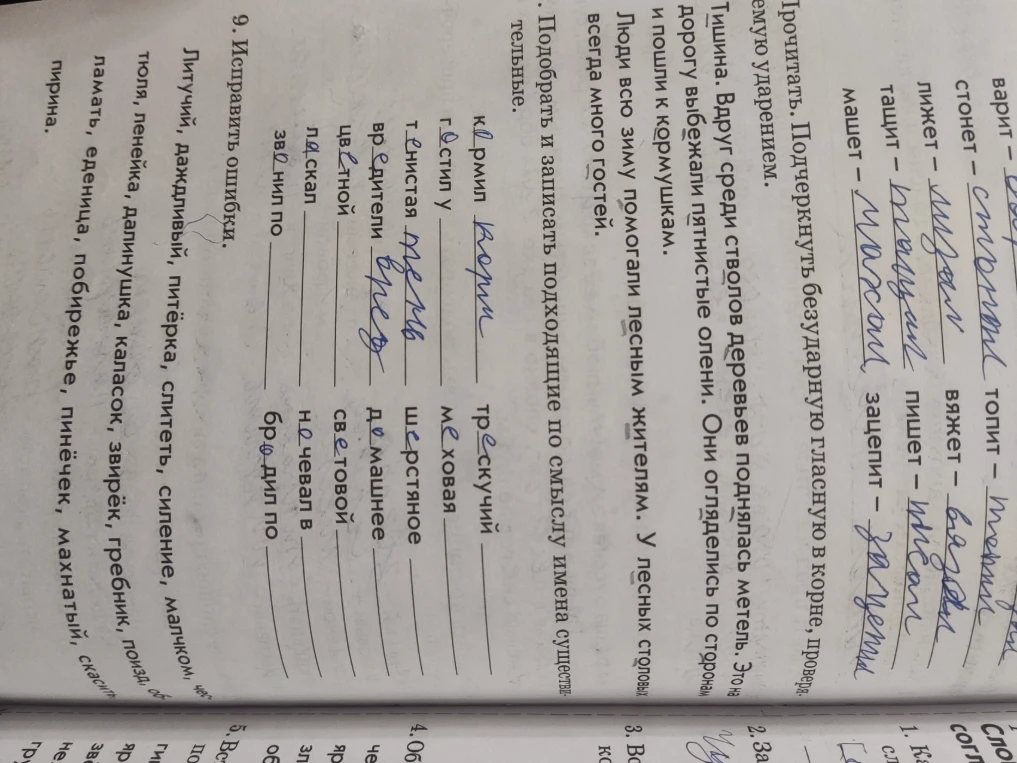 варит –
стонет – стонал топит – топил
лижет – лизал вяжет – вязал
тащит – тащил пишет – писал
машет – махал зацепит – зацепил
Прочитать. Подчеркнуть безударную гласную в корне, проверя-
емую ударением.
Тишина. Вдруг среди стволов деревьев поднялась метель. Это на
дорогу выбежали пятнистые олени. Они огляделись по сторонам
и пошли к кормушкам.
Люди всю зиму помогали лесным жителям. У лесных столовых
всегда много гостей.
. Подобрать и записать подходящие по смыслу имена существи-
тельные.
кормил корм трескучий
гостил у меховая
тенистая тень шерстяное
вредители вред домашнее
цветной световой
ласкал ночевал в
звонил по бродил по
9. Исправить ошибки.
Литучий, даждливый, питёрка, слитеть, силение, малчком,
тюля, ленейка, далинушка, каласок, звирёк, гребник, поизд,
ламать, еденица, побирежье, пинёчек, махнатый,
пирина.
1.
2. За
3. Вс
4. Об
5. Вс